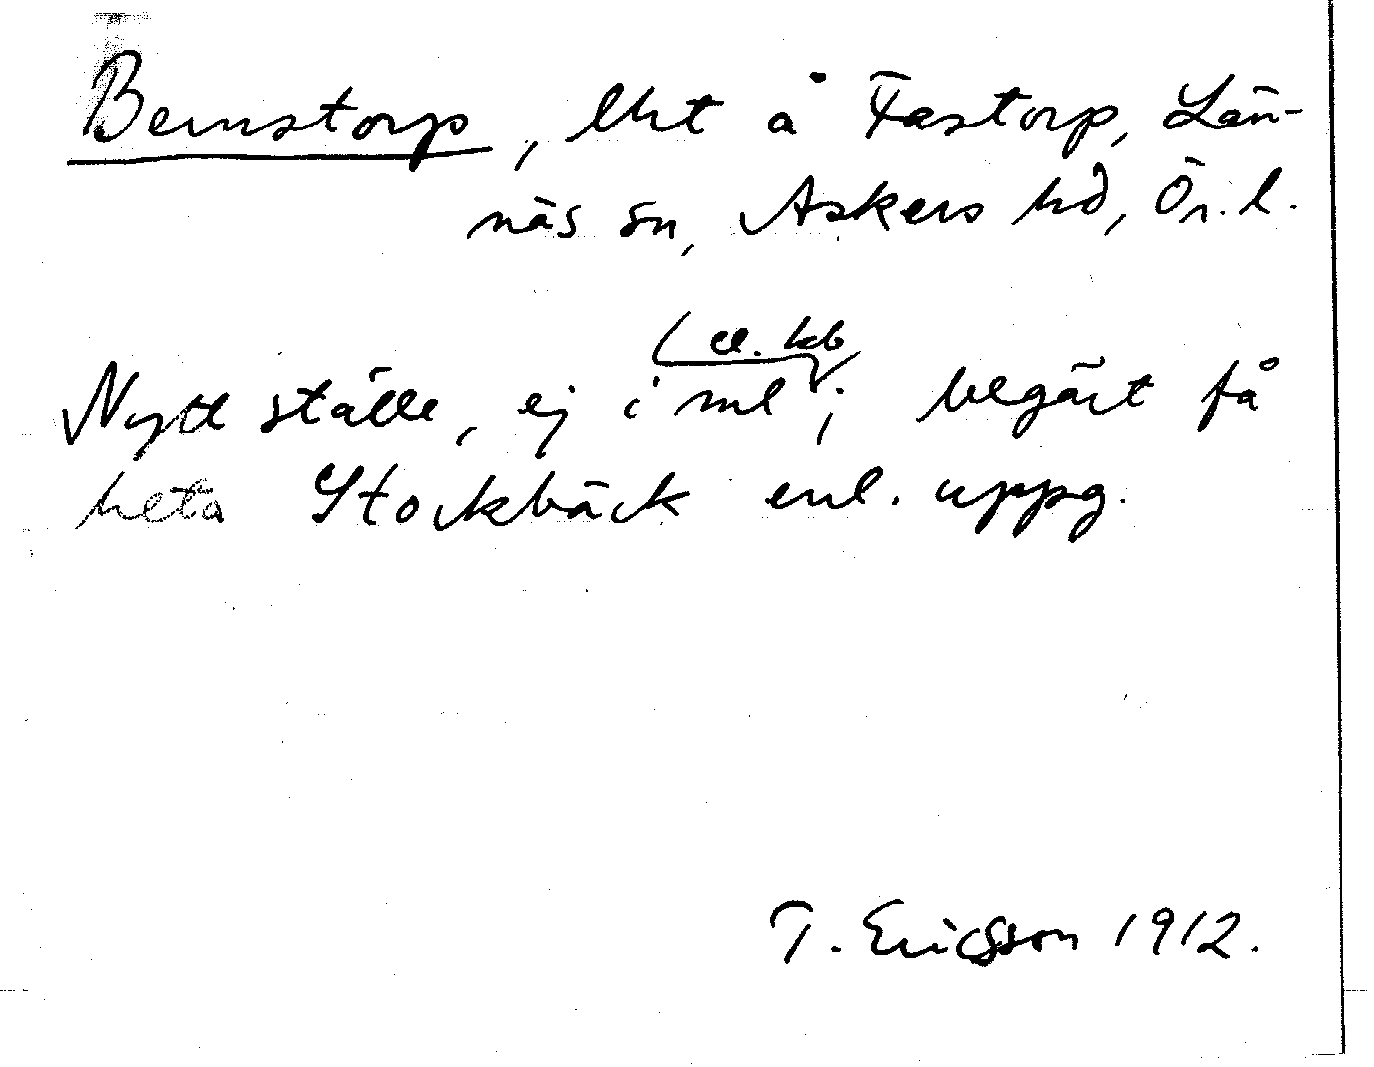 Bernstorp, lht å Fastorp, Län-
näs sn, Askers hd, Ör. l.
(el. kb)
Nytt ställe, ej i ml; begärt få
heta Stockbäck enl. uppg.
T. Ericsson 1912.